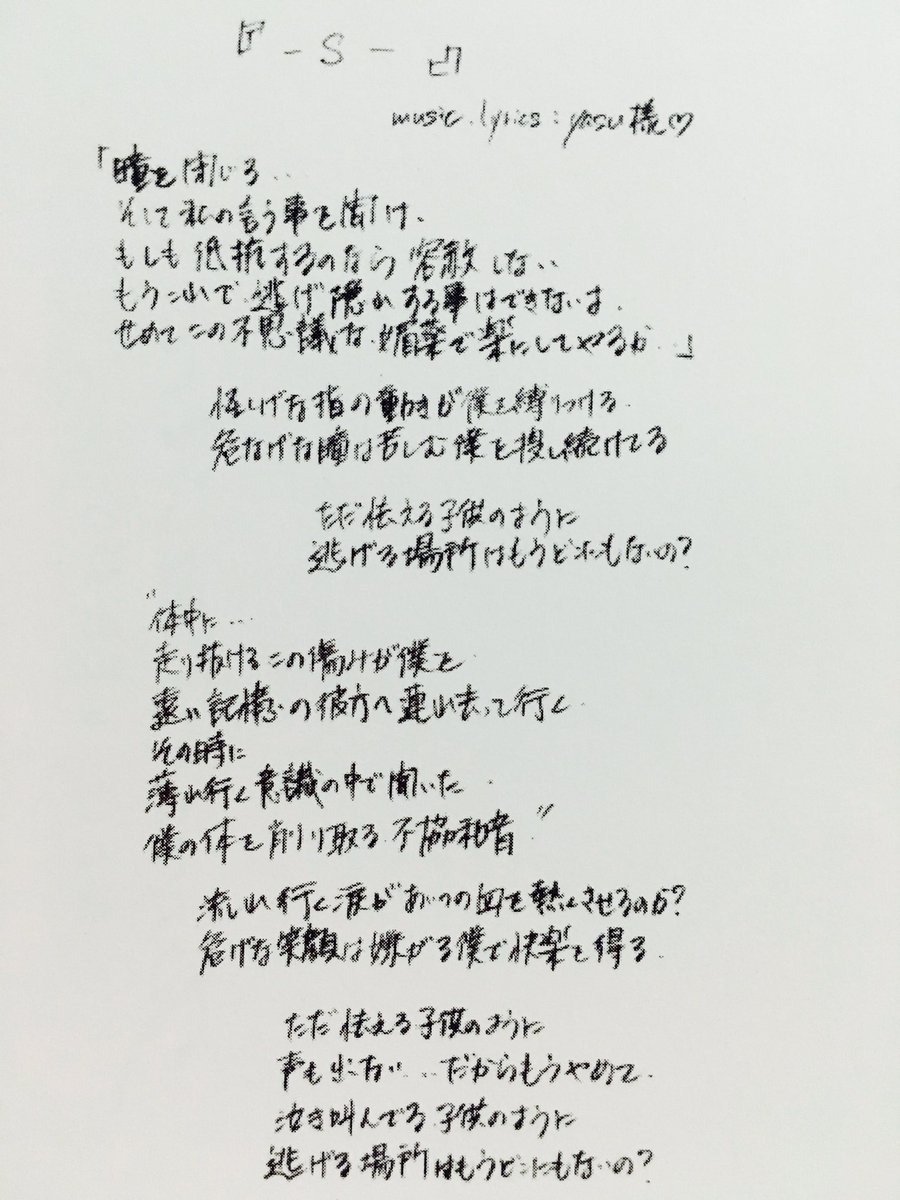 『 - S - 』
music.lyrics:yasu様♡
「瞳を閉じろ‥
そして私の言う事を聞け、
もしも抵抗するのなら容赦しない‥
もうこれで逃げ隠れする事はできないは、
せめてこの不思議な媚薬で楽にしてやるか‥」
怪しげな指の動きが僕を縛りつける
危なげな瞳は苦しむ僕を捜し続けてる
ただ怯える子供のように
逃げる場所はもうどこにもないの?
"体中に…
走り抜けるこの傷みが僕を
遠い記憶の彼方へ連れ去って行く
その時に
薄れ行く意識の中で聞いた
僕の体を削り取る不協和音"
流れ行く涙があいつの血を熱くさせるのか?
危げな笑顔は嫌がる僕で快楽を得る
ただ怯える子供のように
声も出ない‥‥だからもうやめて
泣き叫んでる子供のように
逃げる場所はもうどこにもないの?